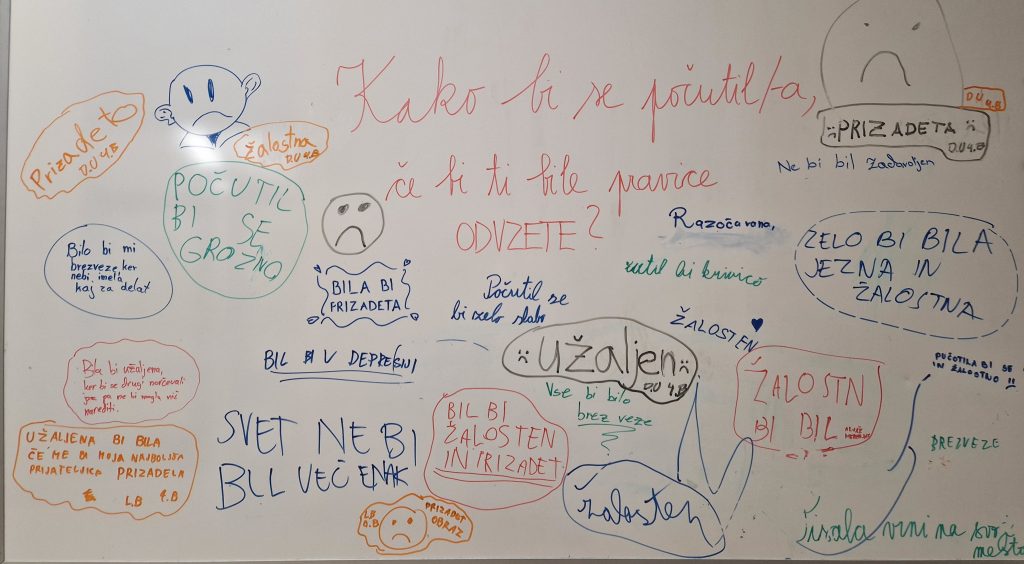 Kako bi se počutil/-a,
če bi ti bile pravice
ODVZETE?
Prizadeto
D.U 4.B
žalostna
D.U 4.B
POČUTIL
BI SE
GROZNO
D.U
4.B
PRIZADETA
D.U 4.B
Ne bi bil zadovoljen
Bilo bi mi
brezveze ker
nebi imela
kaj za delat
BILA BI
PRIZADETA
Razočarano,
ZELO BI BILA
JEZNA IN
ŽALOSTNA
Počutil se
bi zelo slabo
bi krivico
ŽALOSTEN
užaljen
D.U 4.B
BIL V DEPRESIJI
Bla bi užaljena,
ker bi se drugi norčevali
jaz pa ne bi mogla nič
narediti.
Vse bi bilo
brez veze
ŽALOSTN
BI BIL
POČUTILA BI SE
IN ŽALOSTNO !!
UŽALJENA BI BILA
ČE ME BI MOJA NAJBOLJŠA
PRIJATELJICA PRIZADELA
L.B 4.B
SVET NE BI
BIL VEČ ENAK
BIL BI
ŽALOSTEN
IN PRIZADET
BREZVEZE
žalosten
L.B
PRIZADET
OBRAZ
vrni na svoj
mesto